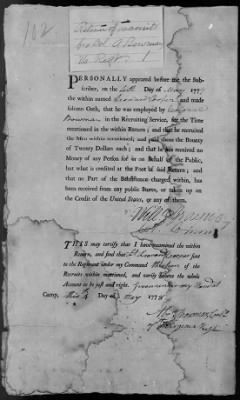 102
Return of
Col A Bowman
Regt
PERSONALLY appeared before me the Sub-
scriber, on the Day of May 177
the within named Leonard Cooper and made
solemn Oath, that he was employed by
Bowman in the Recruiting Service, for the Time
mentioned in the within Return; and that he recruited
the Men within mentioned; and paid them the Bounty
of Twenty Dollars each; and that he has received no
Money of any Person for in on Behalf of the Public,
but what is credited at the Foot of said Return; and
that no Part of the Subsistence charged within, has
been received from any public Stores, or taken up on
the Credit of the United States, or any of them.
THIS may certify that I have examined the within
Return, and find that Lt Leonard Cooper sent
to the Regiment under my Command of the
Recruits within mentioned, and verily believe the whole
Account to be just and right. Given under my Hand at
Camp, this Day of May 1778
Bowman
of Virginia Regt